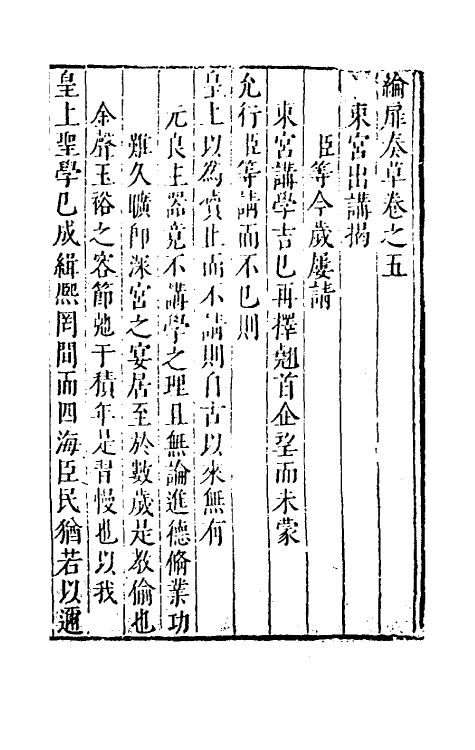 綸扉奏草卷之五
東宮出講揭
臣等今歲屢請
東宮講學吉已再擇翹首企望而未蒙
允行臣等請而不已則
皇上以為瀆止而不請則自古以來無有
元良主器竟不講學之理且無論進德脩業功
難久曠即深宮之宴居至於數歲是教偷也
金聲玉裕之容節弛于積年是習慢也以我
皇上聖學已成緝熙罔間而四海臣民猶若以邇